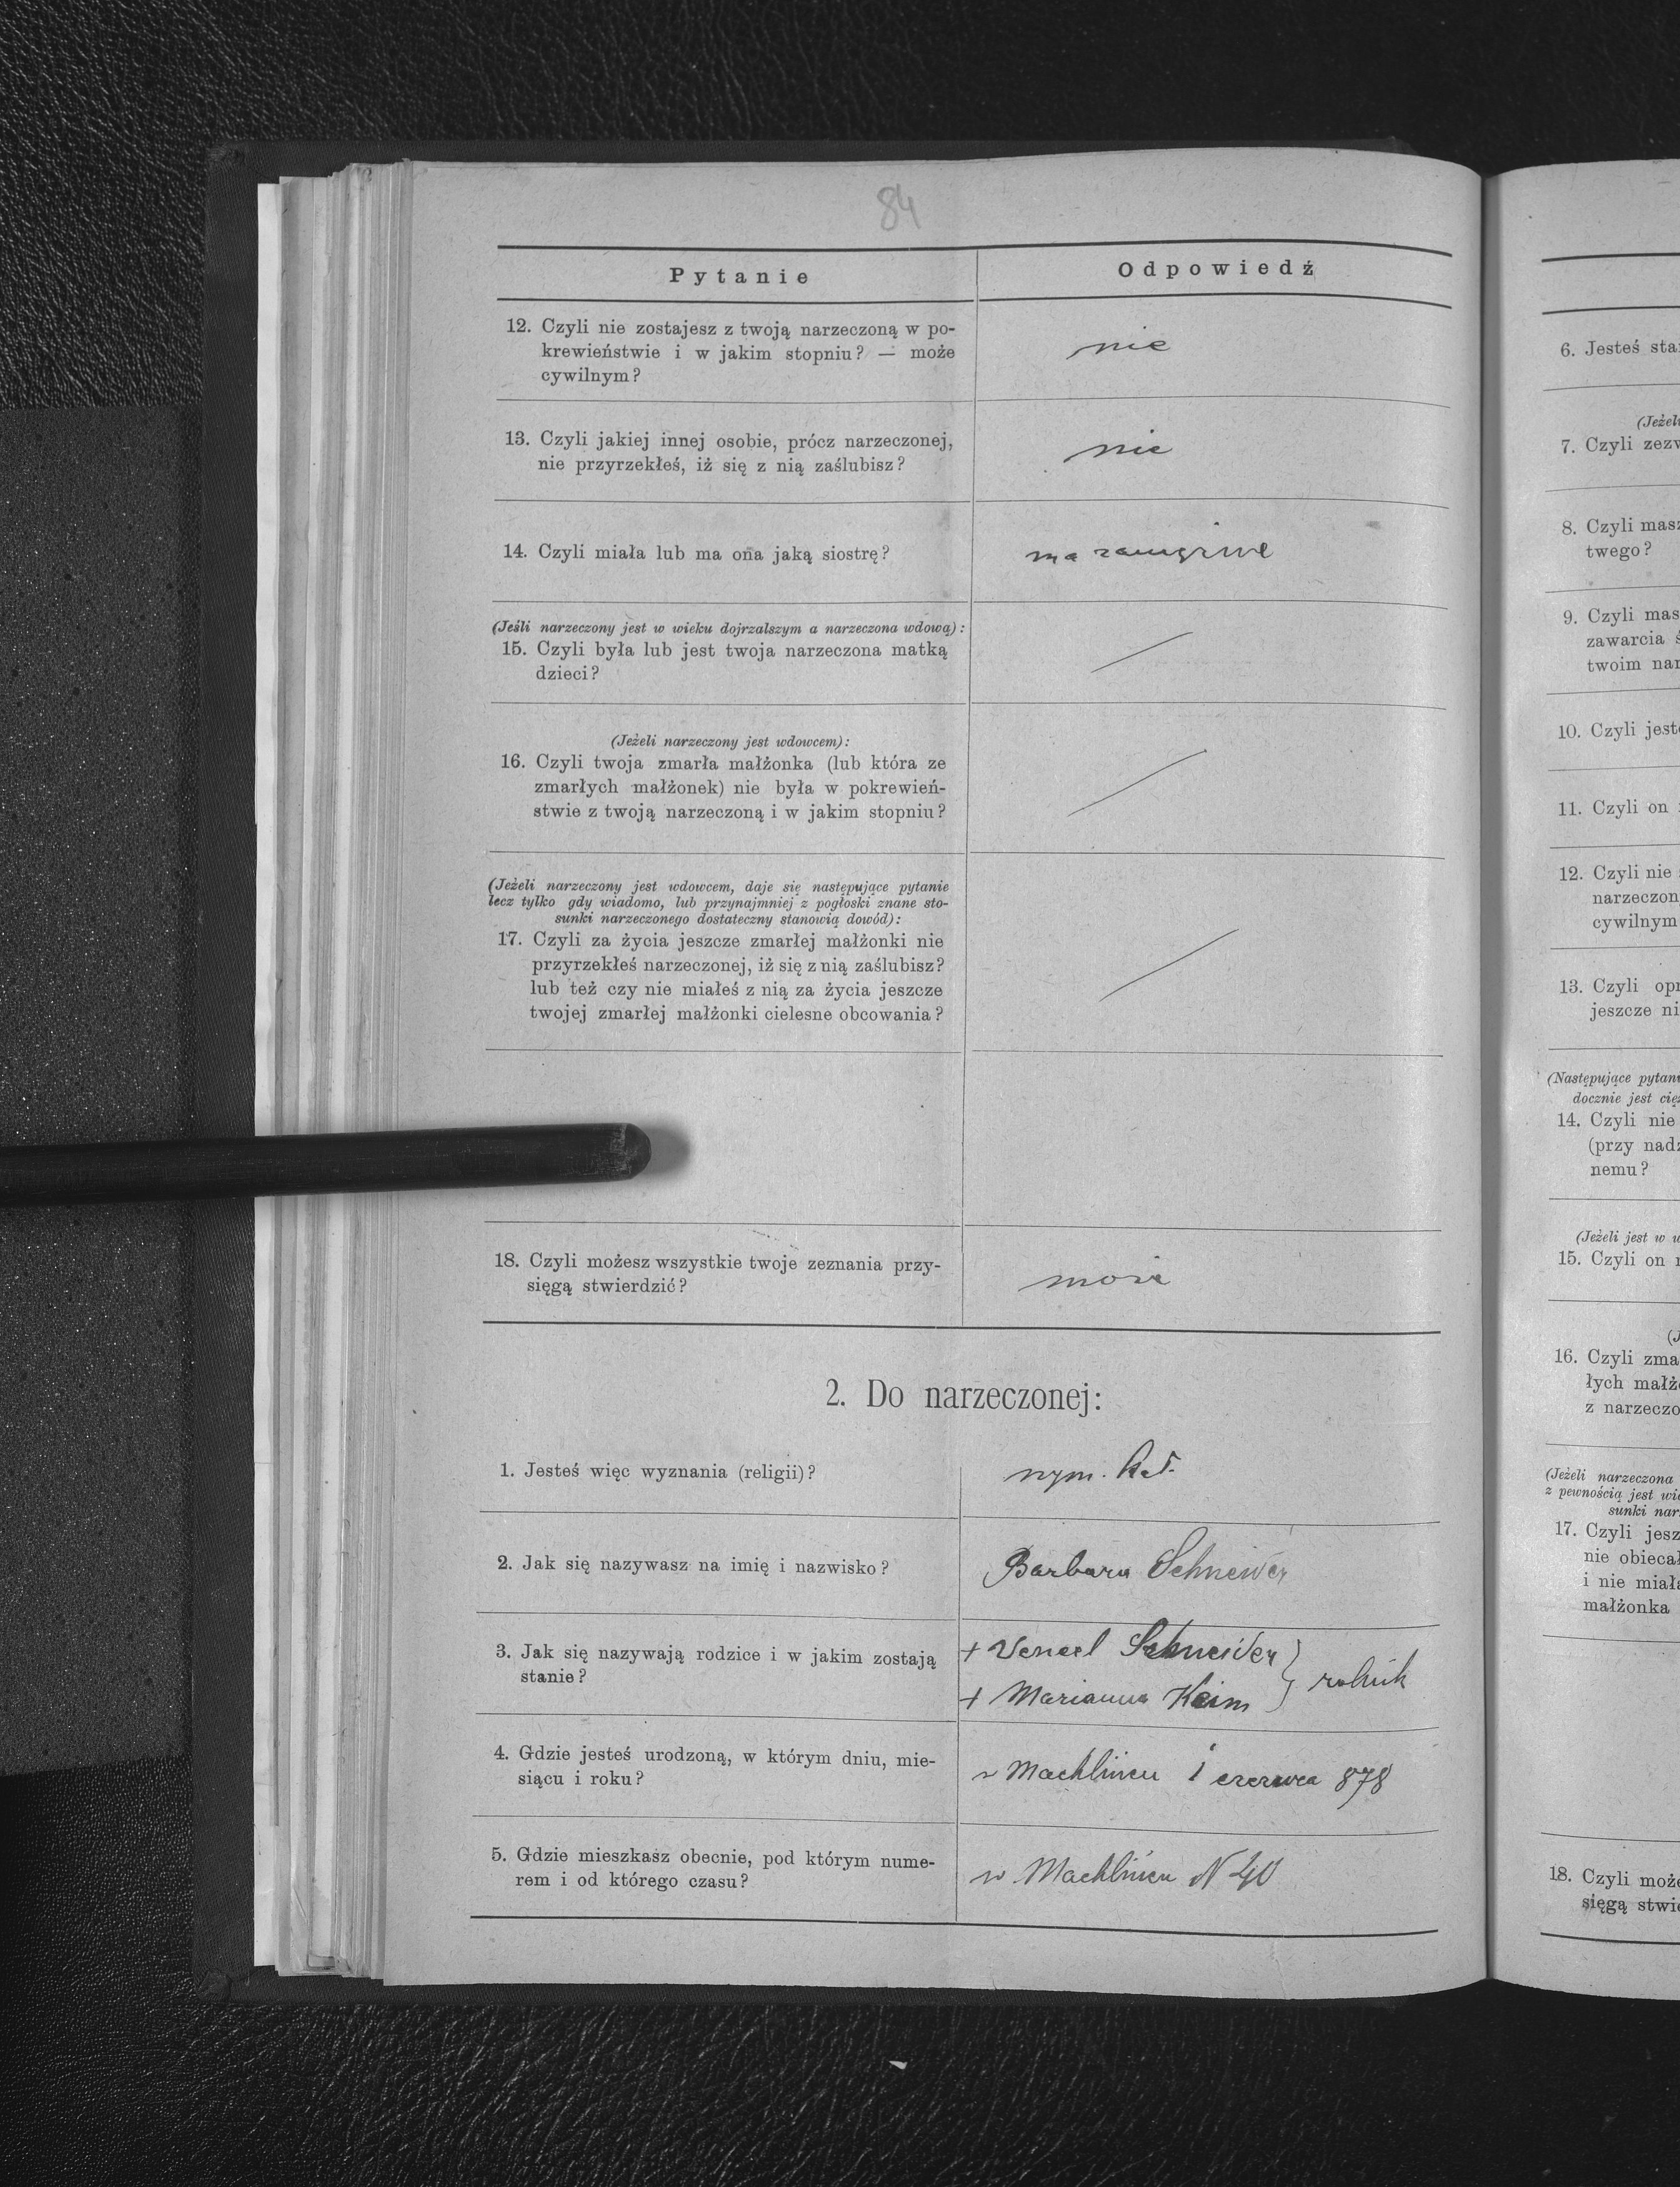 84
Pytanie
Odpowiedź
12. Czyli nie zostajesz z twoją narzeczoną w po-
krewieństwie i w jakim stopniu? — może
cywilnym?
nie
13. Czyli jakiej innej osobie, prócz narzeczonej,
nie przyrzekłeś, iż się z nią zaślubisz?
nie
14. Czyli miała lub ma ona jaką siostrę?
ma
(Jeśli narzeczony jest w wieku dojrzalszym a narzeczona wdową):
15. Czyli była lub jest twoja narzeczona matką
dzieci?
(Jeżeli narzeczony jest wdowcem):
16. Czyli twoja zmarła małżonka (lub która ze
zmarłych małżonek) nie była w pokrewień-
stwie z twoją narzeczoną i w jakim stopniu?
(Jeżeli narzeczony jest wdowcem, daje się następujące pytanie
lecz tylko gdy wiadomo, lub przynajmniej z pogłoski znane sto-
sunki narzeczonego dostateczny stanowią dowód):
17. Czyli za życia jeszcze zmarłej małżonki nie
przyrzekłeś narzeczonej, iż się z nią zaślubisz?
lub też czy nie miałeś z nią za życia jeszcze
twojej zmarłej małżonki cielesne obcowania?
18. Czyli możesz wszystkie twoje zeznania przy-
sięgą stwierdzić?
może
2. Do narzeczonej:
1. Jesteś więc wyznania (religii)?
rzym. kat.
2. Jak się nazywasz na imię i nazwisko?
Barbara Schneider
3. Jak się nazywają rodzice i w jakim zostają
stanie?
+ Vencel Schneider
+ Marianna Keim
rolnik
4. Gdzie jesteś urodzoną, w którym dniu, mie-
siącu i roku?
w Machlińcu 1 czerwca 878
5. Gdzie mieszkasz obecnie, pod którym nume-
rem i od którego czasu?
w Machlińcu N 40
6. Jesteś sta
(Jeżeli
7. Czyli zezw
8. Czyli masz
twego?
9. Czyli mas
zawarcia ś
twoim nar
10. Czyli jeste
11. Czyli on
12. Czyli nie
narzeczon
cywilnym
13. Czyli opr
jeszcze ni
(Następujące pytani
docznie jest cię
14. Czyli nie
(przy nadz
nemu?
(Jeżeli jest w w
15. Czyli on
(J
16. Czyli zma
łych małżo
z narzeczo
(Jeżeli narzeczona
z pewnością jest wia
sunki nar
17. Czyli jesz
nie obiecał
i nie miała
małżonka
18. Czyli może
sięgą stwie